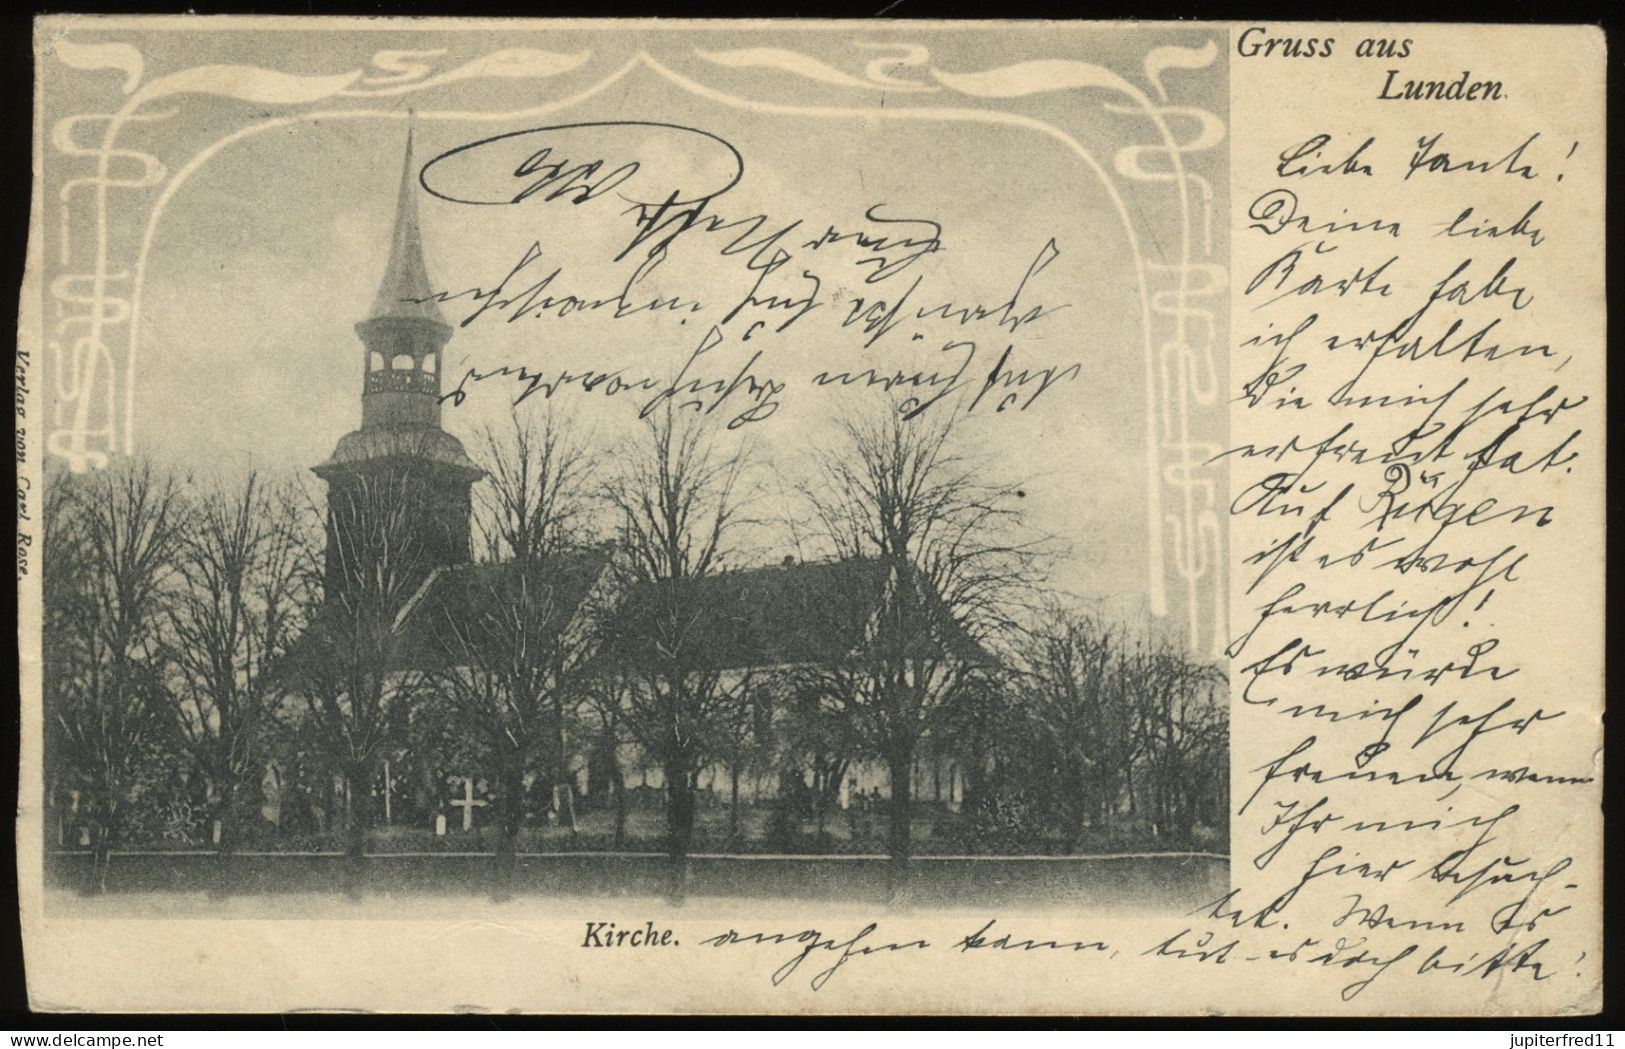 Gruss aus
Lunden.
Liebe Tante!
Deine liebe
Karte habe
ich erhalten,
Die mich sehr
erfreut hat.
Auf Rügen
ist es wohl
herrlich!
Es würde
mich sehr
freuen, wenn
Ihr mich
hier besuch-
tet. Wenn es
Kirche. angehen kann, tut es doch bitte!
Verlag von Carl Rose.
jupiterfred11